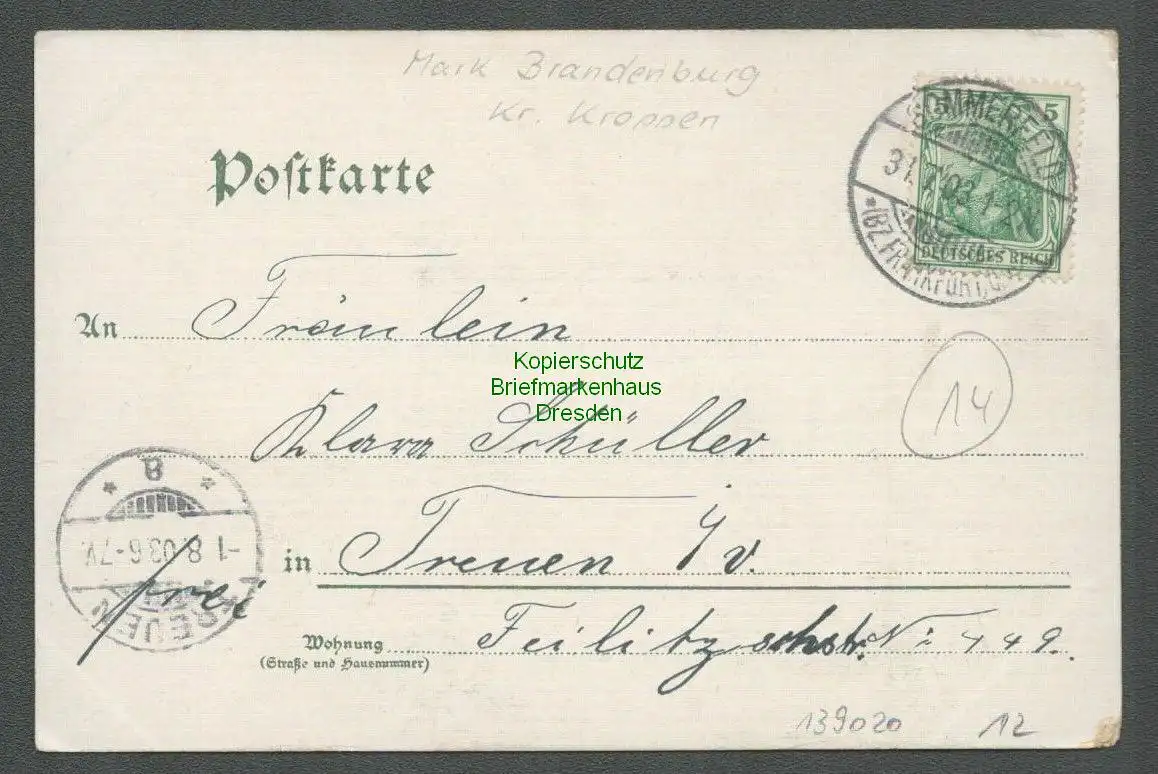 Mark Brandenburg
Kr. Krossen
Postkarte
5
DEUTSCHES REICH
SOMMERFELD
31. 7. 03. 1-2N.
*(BZ.FRANKFURT,O.)
An Fräulein
Kopierschutz
Briefmarkenhaus
Dresden
Klara Schüller
14
in Treuen i/v.
B
-1.8.03.6-7V.
TREUEN
frei
Wohnung
(Straße und Hausnummer)
Feilitzschstr. No 449.
139020
12